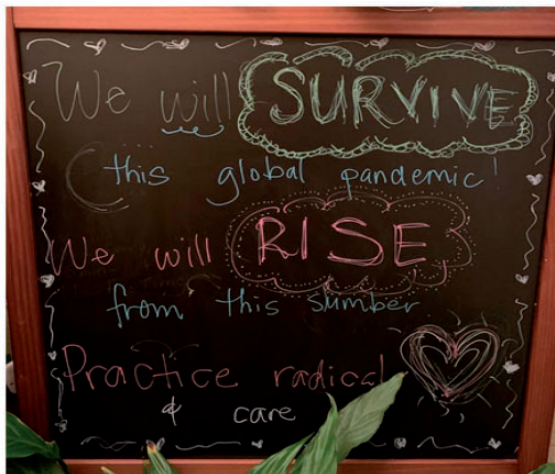 We will SURVIVE
this global pandemic!
We will RISE
from this slumber.
Practice radical
& care